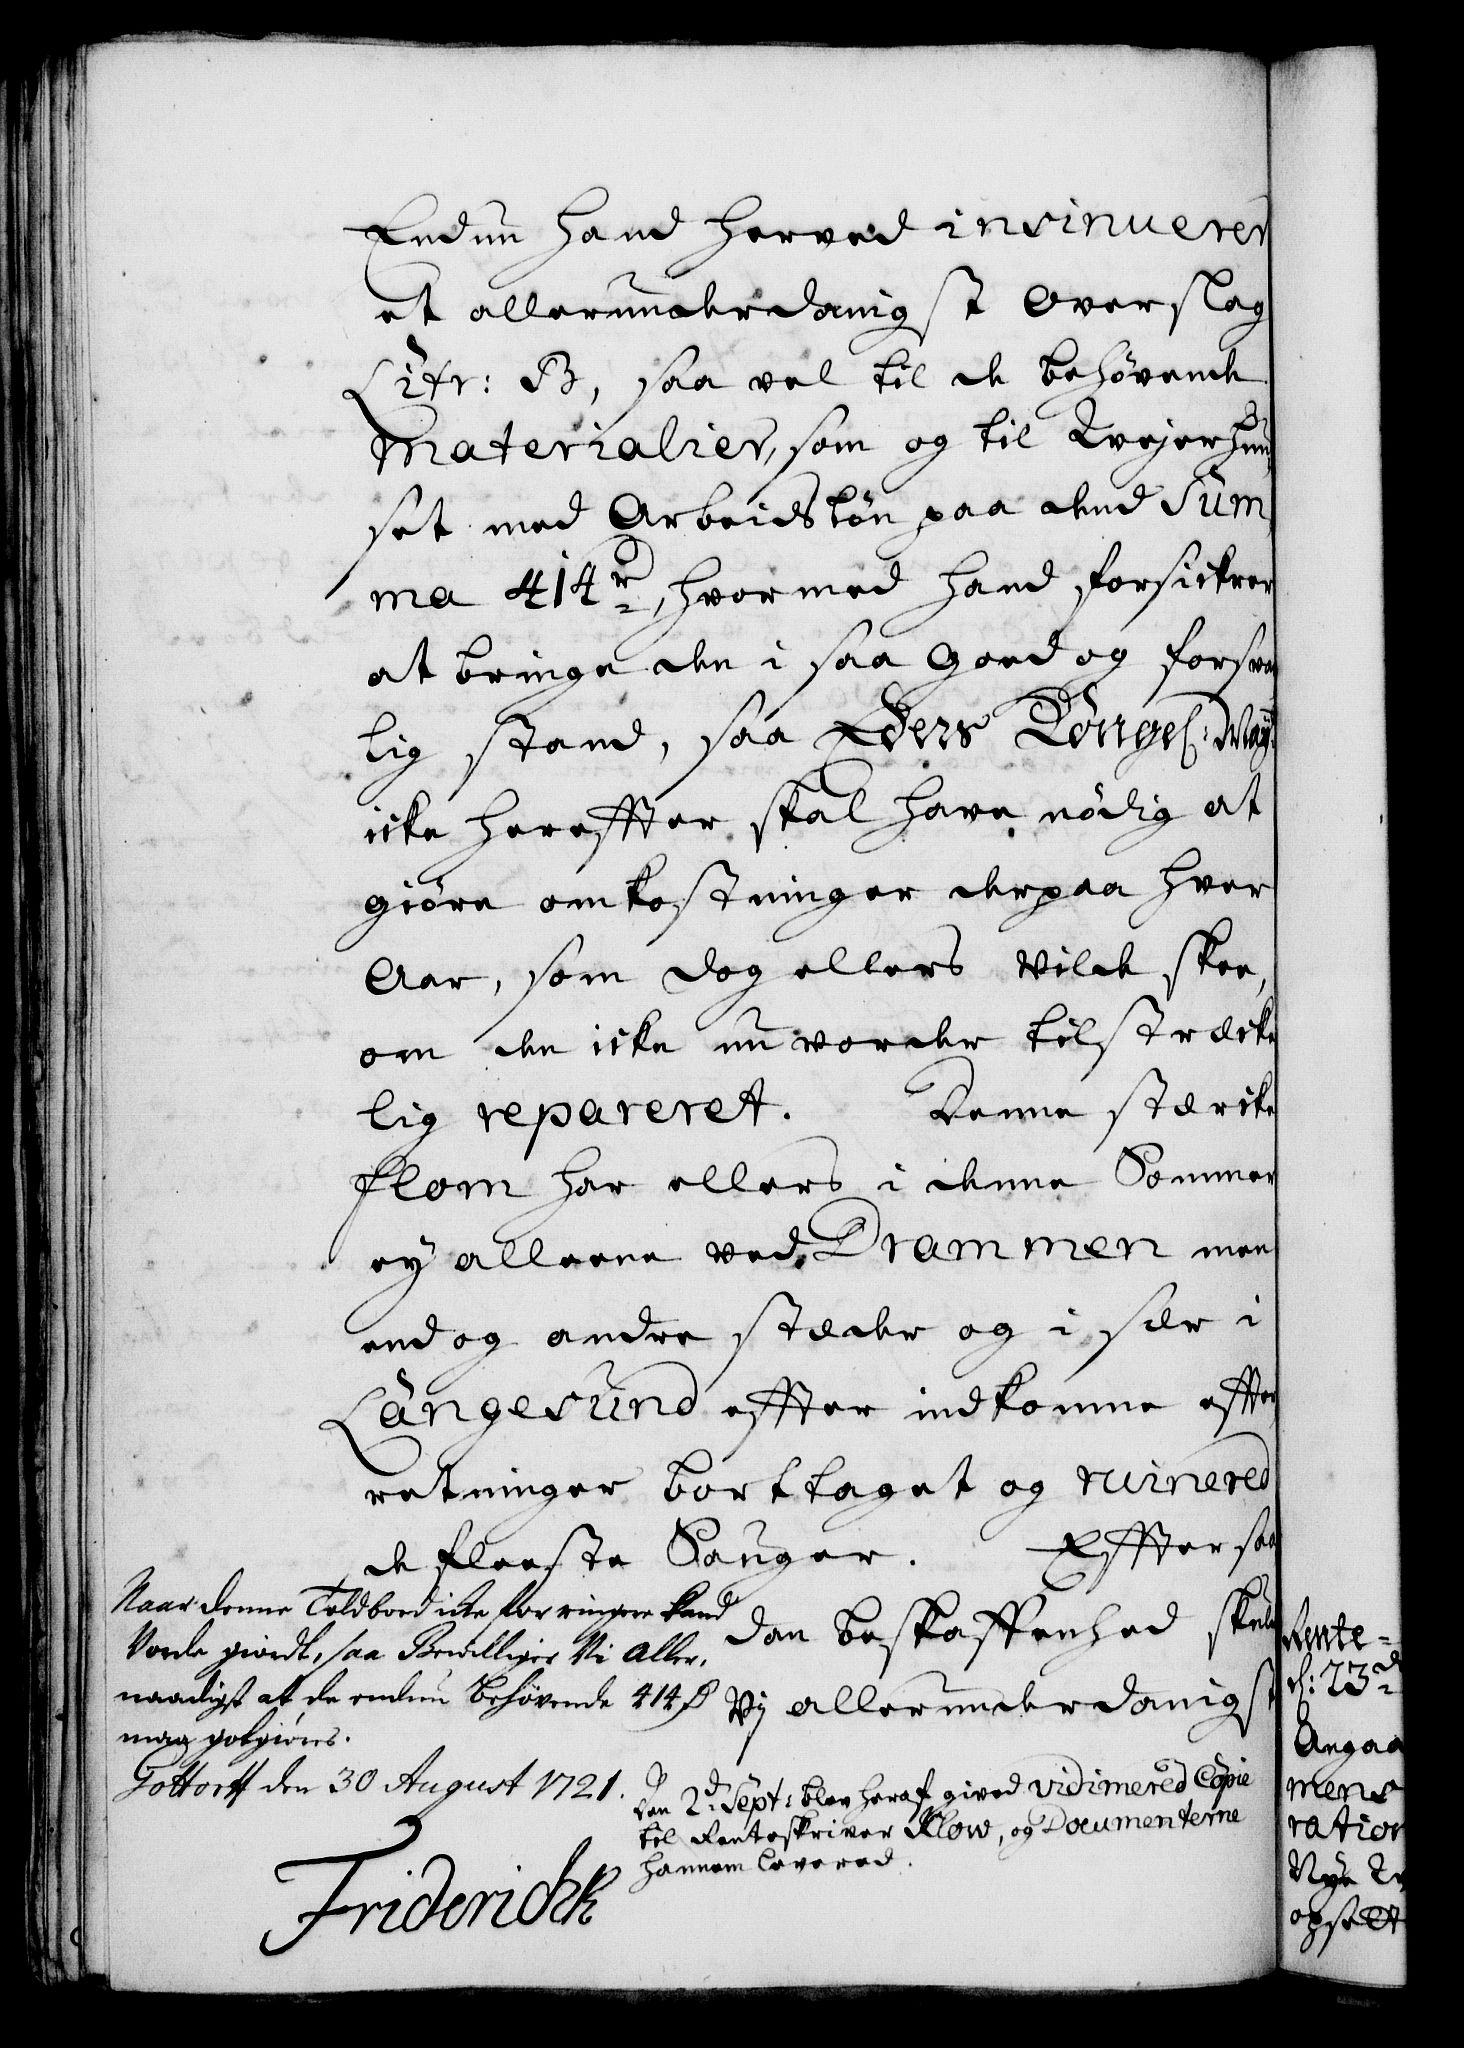 Endnu hand herved insinuerer
et allerunderdanigst Overslag
Litr: B, saa vel til de behövende
Materialier, som og til Weyerhuu
set med Arbeidslön paa dend Sum
ma 414 rd, hvormed hand forsickrer
at bringe den i saa goed og forsvar
lig stand, saa Eders Kongel: May:
icke hereffter skal have nödig at
giöre omkostninger derpaa hver
Aar, som dog ellers vilde skee,
om den icke nu vorder tilstræcke
lig repareret. Denne stærcke
flom har ellers i denne Sommer
ey alleene ved Drammen men
endog andre stæder og i sær i
Langesund effter indkomne effter
retninger borttaget og ruinered
de fleeste Sauger. Effter saa
dan beskaffenhed skulle
Vj allerunderdanigst
Naar denne Toldboed icke for ringere kand
Vorde giordt, saa Bewilliger Vi Aller,
naadigst at de endnu behövende 414 rd
maa gotgiöres.
Gottorff den 30 August 1721.
Friderich R
Den 2d Sept: blev heraf gived vidimered Copie
til Renteskriver Klow, og Documenterne
hannem levered.
Rente-
d: 23d
Angaa
mens
ration
Nye
opsætt